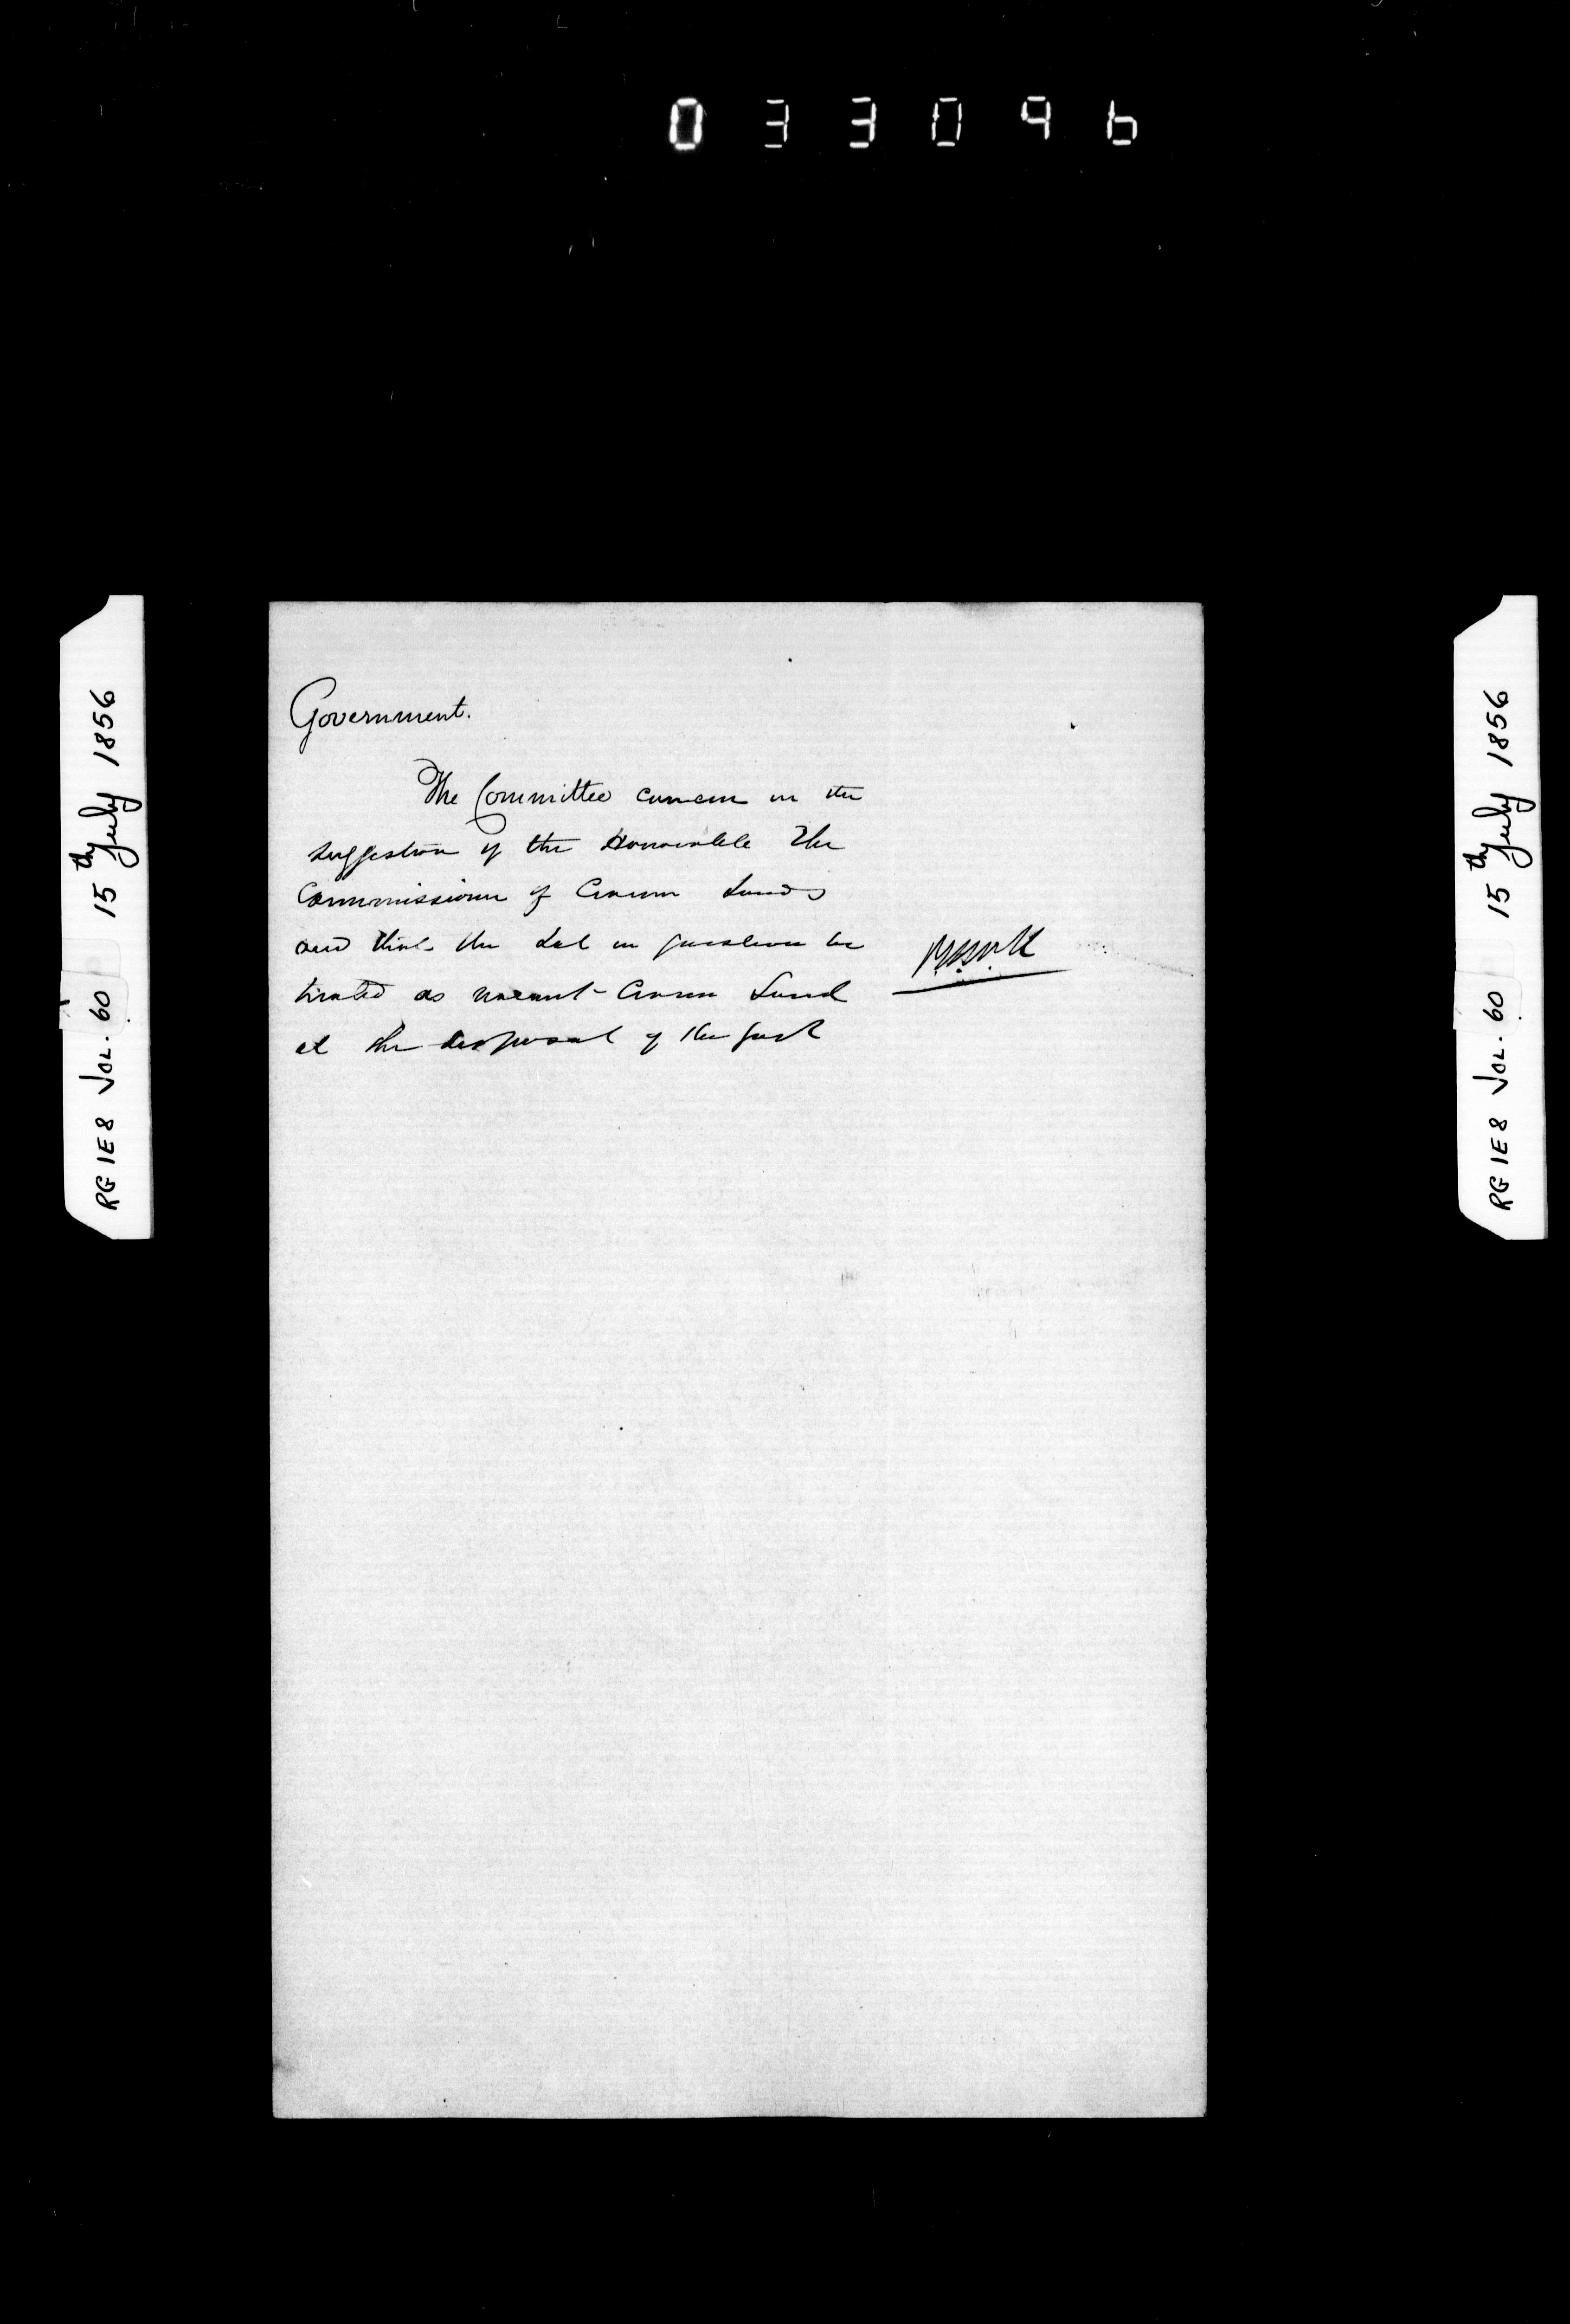 033096
Government.
The Committee concur in the
suggestion of the Honorable The
Commissioner of Crown Lands
and that the Lot in question be
treated as vacant Crown Land
at the disposal of the Govt
RG 1E8 VOL. 60 15th July 1856
RG 1E8 VOL. 60 15th July 1856